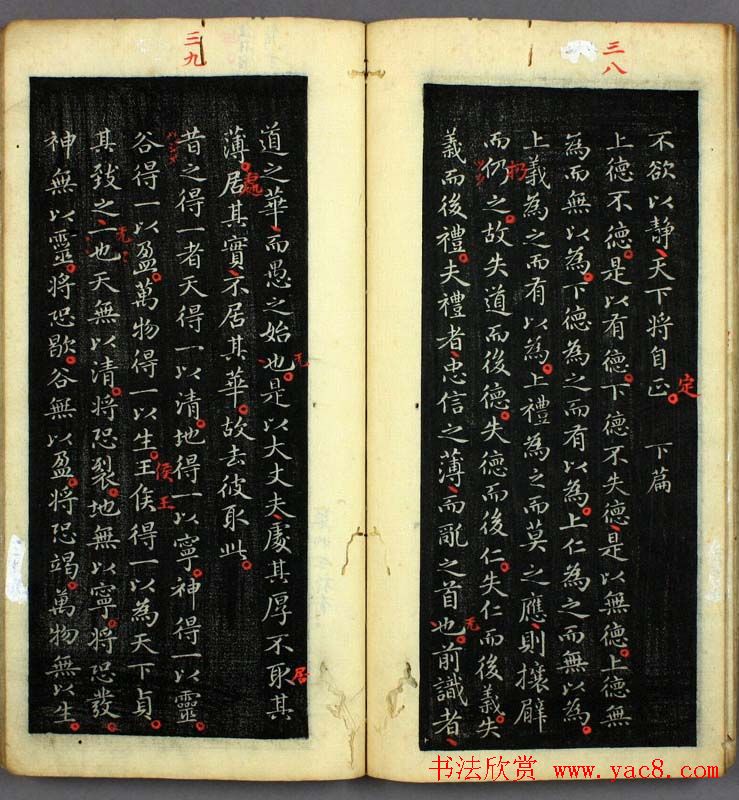 三八
不欲以靜天下將自正 下篇
定
上德不德是以有德下德不失德是以無德上德無
為而無以為下德為之而有以為上仁為之而無以為
上義為之而有以為上禮為之而莫之應則攘臂
扔
而仍之故失道而後德失德而後仁失仁而後義失
義而後禮夫禮者忠信之薄而亂之首也前識者
无
三九
道之華而愚之始也是以大丈夫處其厚不取其
无
居
薄居其實不居其華故去彼取此
處
昔之得一者天得一以清地得一以寧神得一以靈
谷得一以盈萬物得一以生王侯得一以為天下貞
侯王
其致之一也天無以清將恐裂地無以寧將恐發
无
神無以靈將恐歇谷無以盈將恐竭萬物無以生
书法欣赏 www.yac8.com